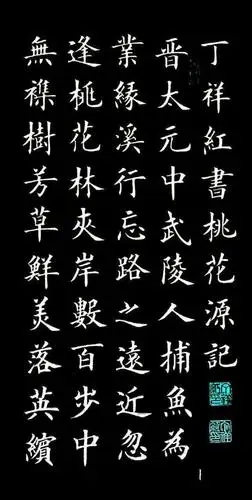 丁祥紅書桃花源記
晋太元中武陵人捕魚為
業緣溪行忘路之遠近忽
逢桃花林夾岸數百步中
無襍樹芳草鮮美落英繽
1